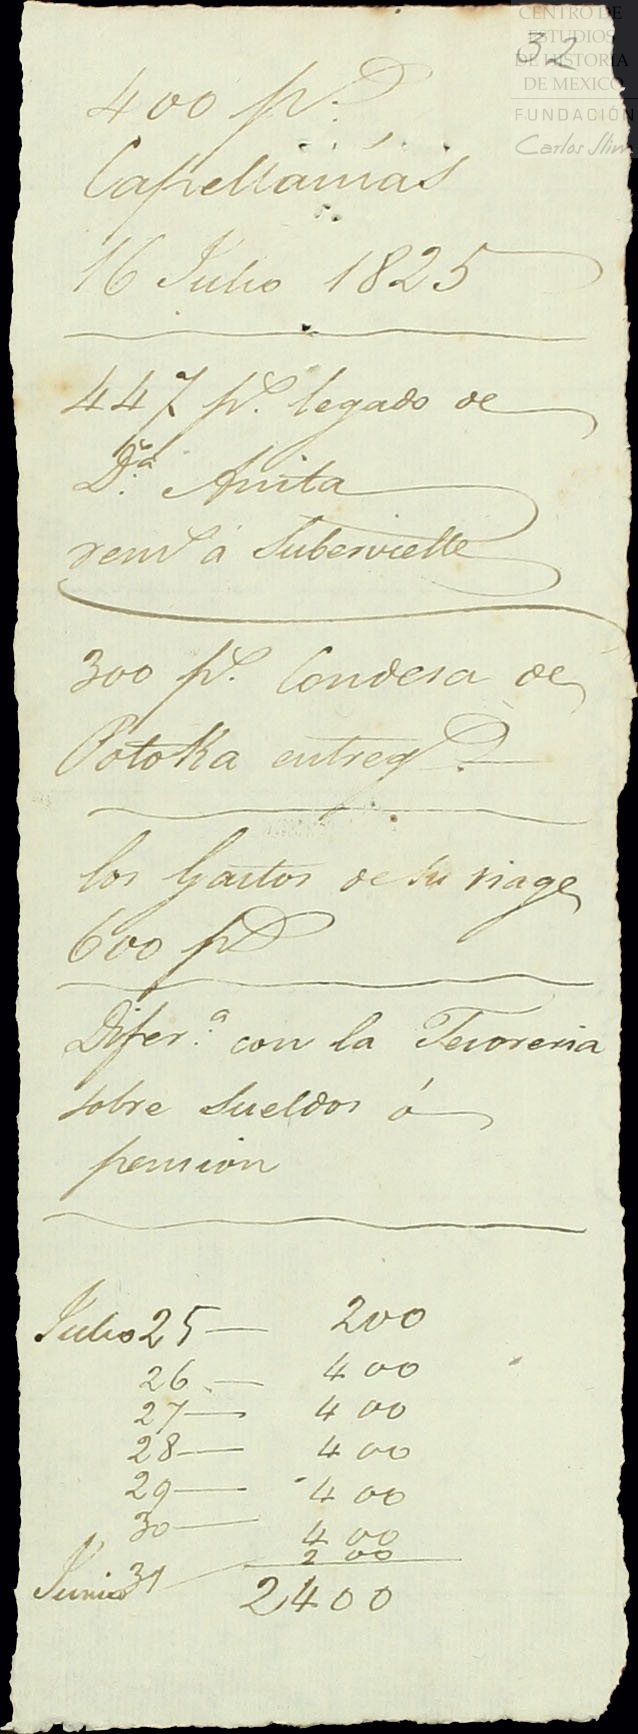 CENTRO DE
ESTUDIOS
DE HISTORIA
DE MEXICO
FUNDACIÓN
Carlos Slim
32
400 p.s
Capellanias
16 Julio 1825
447 p.s legado de
D.ña Anita
rem.s á Subervielle
300 p.s Condesa de
Potoka entreg.s
los Gastos de su viage
600 p.s
Difer.a con la Tesoreria
sobre sueldos ó
pension
Julio 25 — 200
26 — 400
27 — 400
28 — 400
29 — 400
30 — 400
Junio 31 — 200
2400